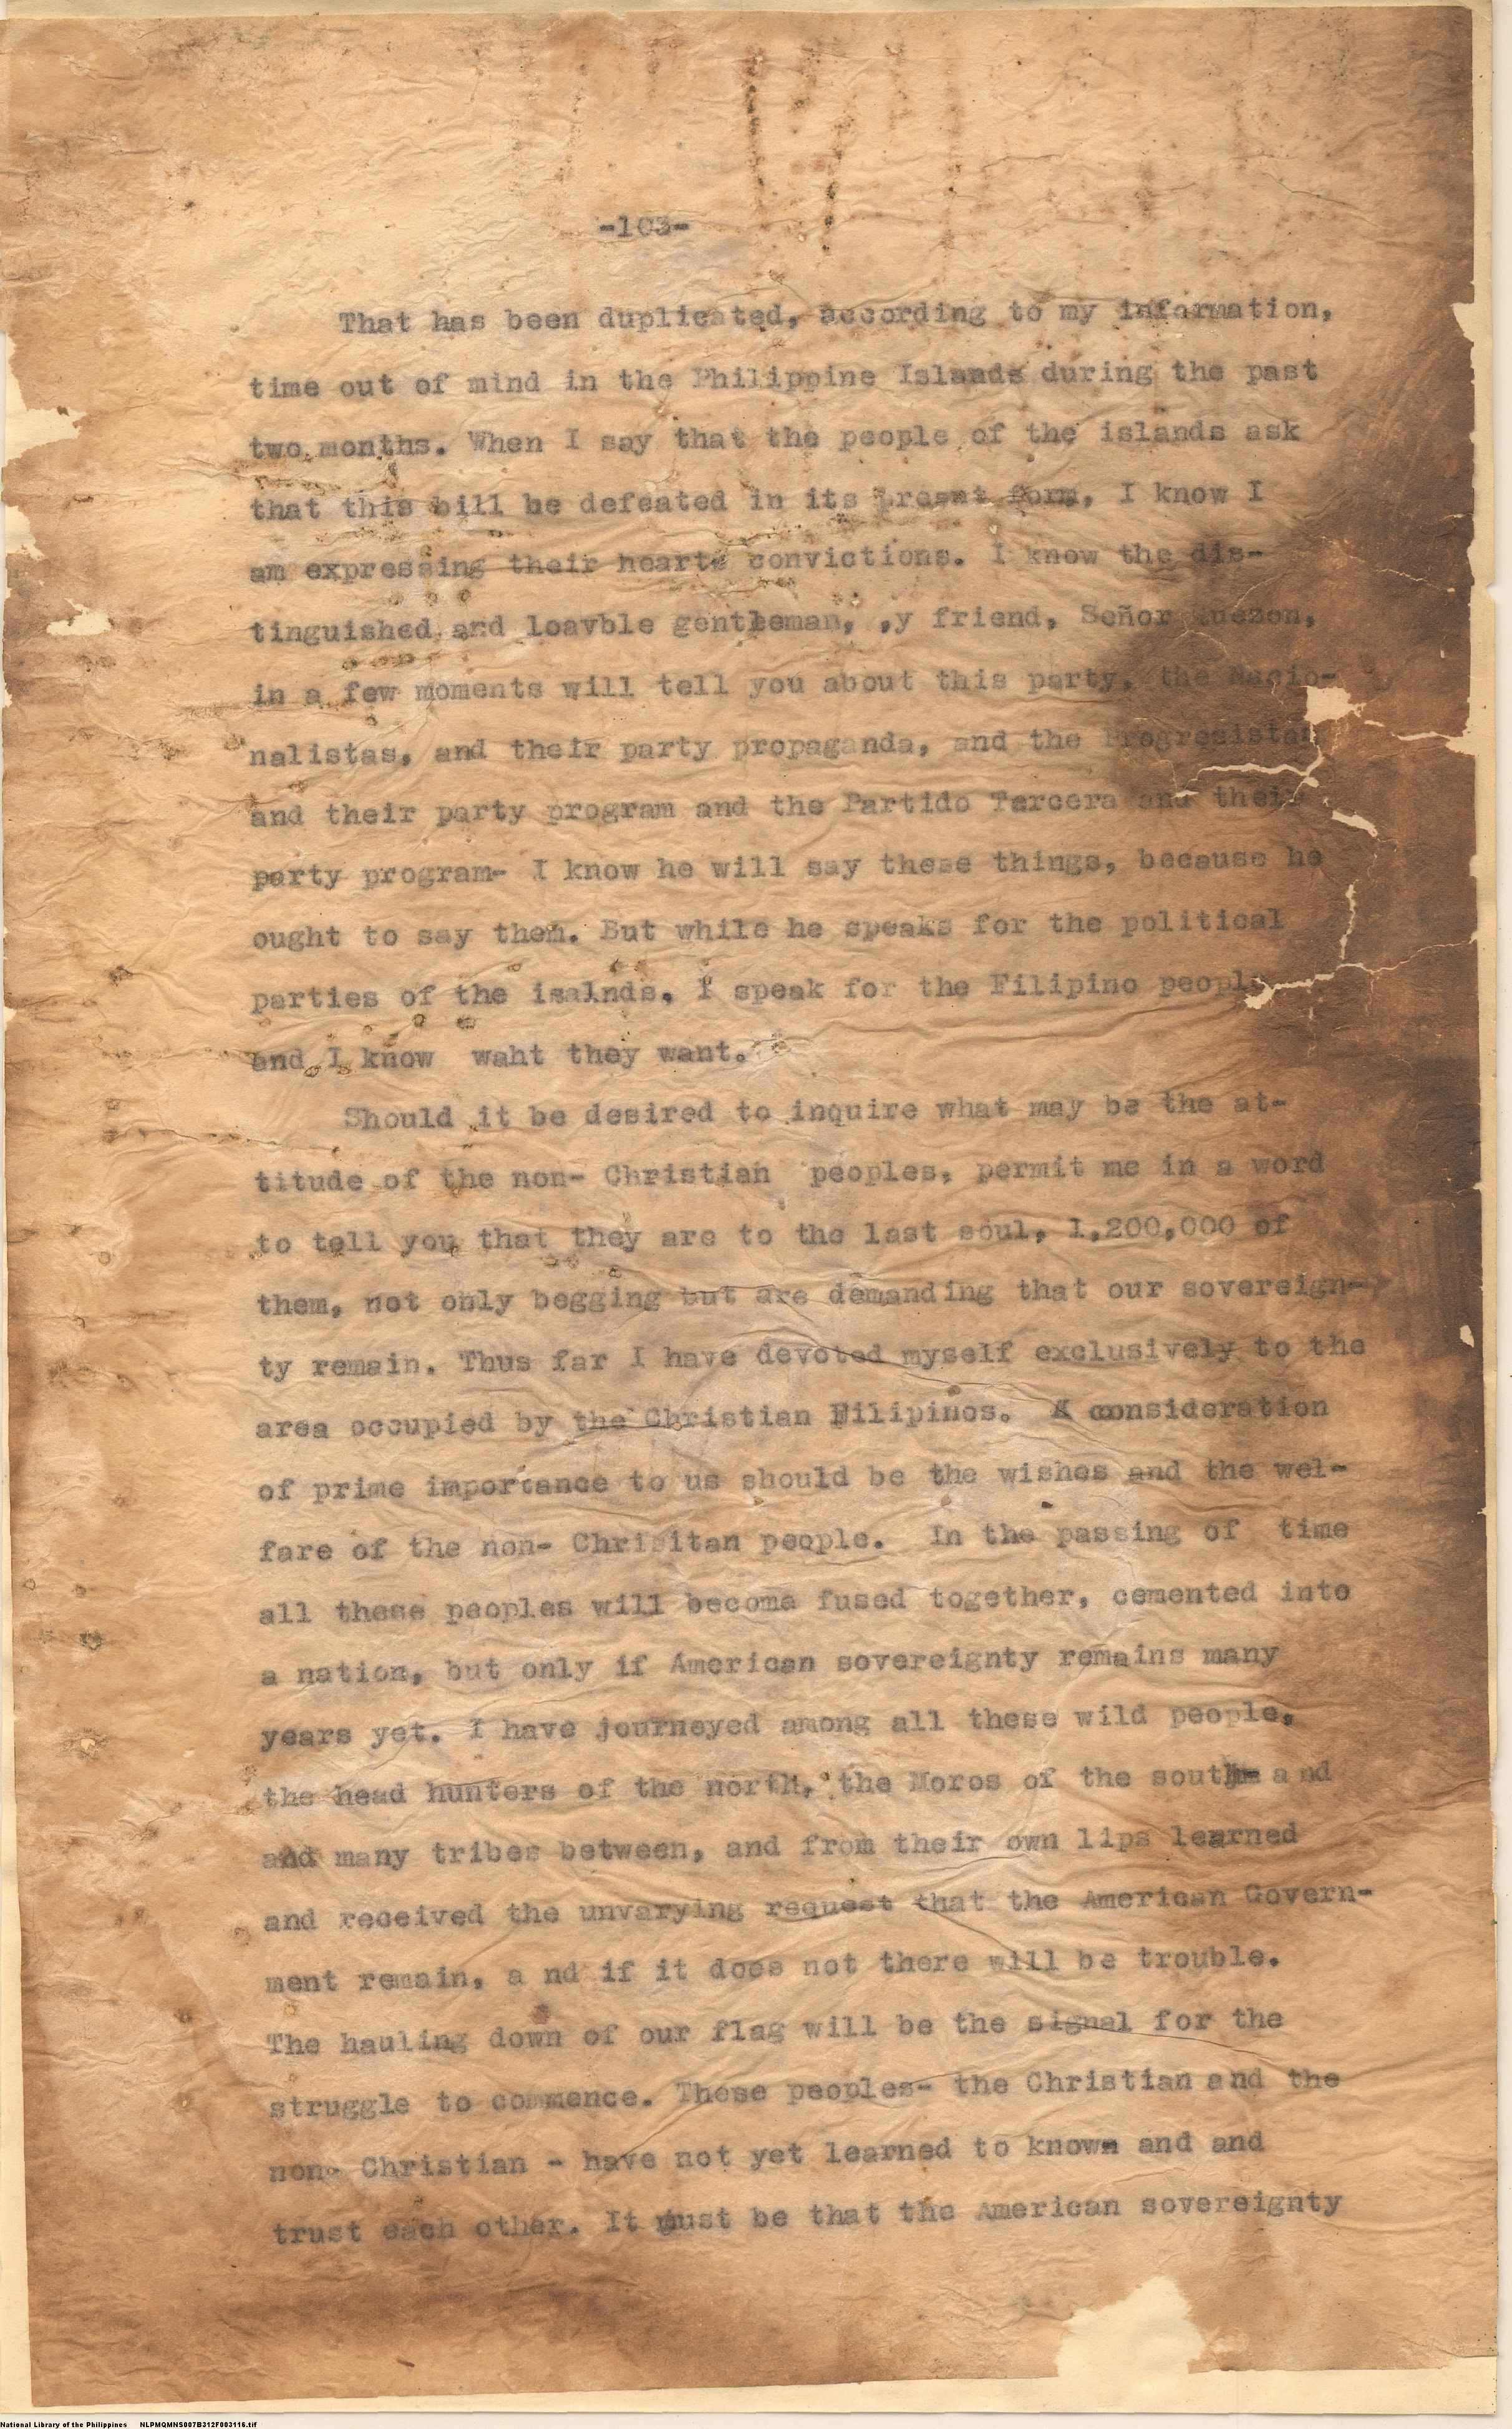 -103-
That has been duplicated, according to my information,
time out of mind in the Philippine Islands during the past
two months. When I say that the people of the islands ask
that this bill be defeated in its present form, I know I
am expressing their hearts convictions. I know the dis-
tinguished and loavble gentleman, ,y friend, Señor Quezon,
in a few moments will tell you about this party, the Nacio-
nalistas, and their party propaganda, and the Progresistas
and their party program and the Partido Tercera and their
party program- I know he will say these things, because he
ought to say them. But while he speaks for the political
parties of the isalnds, I speak for the Filipino people
and I know waht they want.
Should it be desired to inquire what may be the at-
titude of the non- Christian peoples, permit me in a word
to tell you that they are to the last soul, 1,200,000 of
them, not only begging but are demanding that our sovereign-
ty remain. Thus far I have devoted myself exclusively to the
area occupied by the Christian Filipinos. A consideration
of prime importance to us should be the wishes and the wel-
fare of the non- Chrisitan people. In the passing of time
all these peoples will become fused together, cemented into
a nation, but only if American sovereignty remains many
years yet. I have journeyed among all these wild people,
the head hunters of the north, the Moros of the south a nd
and many tribes between, and from their own lips learned
and received the unvarying request that the American Govern-
ment remain, a nd if it does not there will be trouble.
The hauling down of our flag will be the signal for the
struggle to commence. These peoples- the Christian and the
non- Christian - have not yet learned to known and and
trust each other. It must be that the American sovereignty
National Library of the Philippines NLPMQMNS007B312F003116.tif